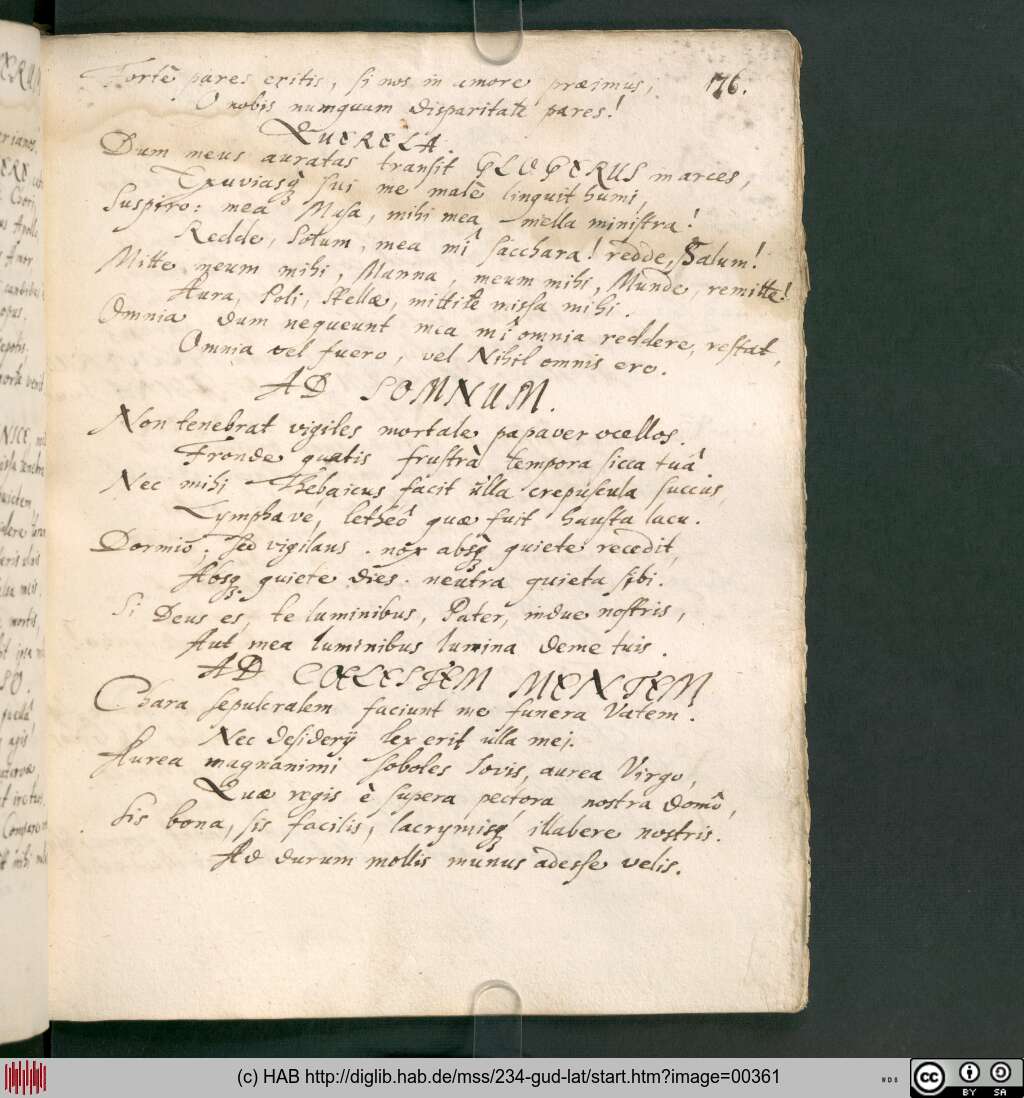 Fortè pares eritis, si nos in amore præimus,
176.
O nobis numquam disparitate pares!
QUERELA.
Dum meus auratas transit GLOGERUS in arces,
Exuviasq; sui me malè linquit humi,
Suspiro: mea Musa, mihi mea mella ministra!
Redde, Solum, mea mî sacchara! redde, Salum!
Mitte meum mihi, Manna, meum mihi, Munde, remitte!
Aura, Poli, Stellæ, mittite missa mihi.
Omnia dum nequeunt mea mî omnia reddere, restat,
Omnia vel fuero, vel Nihil omnis ero.
AD SOMNUM.
Non tenebrat vigiles mortale papaver ocellos.
Fronde quatis frustrà tempora sicca tuâ.
Nec mihi Thebaicus facit ulla crepuscula succus
Lymphave, letheô quæ fuit hausta lacu.
Dormio; sed vigilans. nox absq; quiete recedit,
Absq; quiete dies. neutra quieta sibi.
Si Deus es, te luminibus, Pater, indue nostris,
Aut mea luminibus lumina deme tuis.
AD COELESTEM MENTEM
Chara sepulcralem faciunt me funera Vatem.
Nec desiderij lex erit ulla mei.
Aurea magnanimi soboles Iovis, aurea Virgo,
Quæ regis è supera pectora nostra domô,
Sis bona, sis facilis, lacrymisq; illabere nostris.
Ad durum mollis munus adesse velis.
(c) HAB http://diglib.hab.de/mss/234-gud-lat/start.htm?image=00361
cc
BY SA